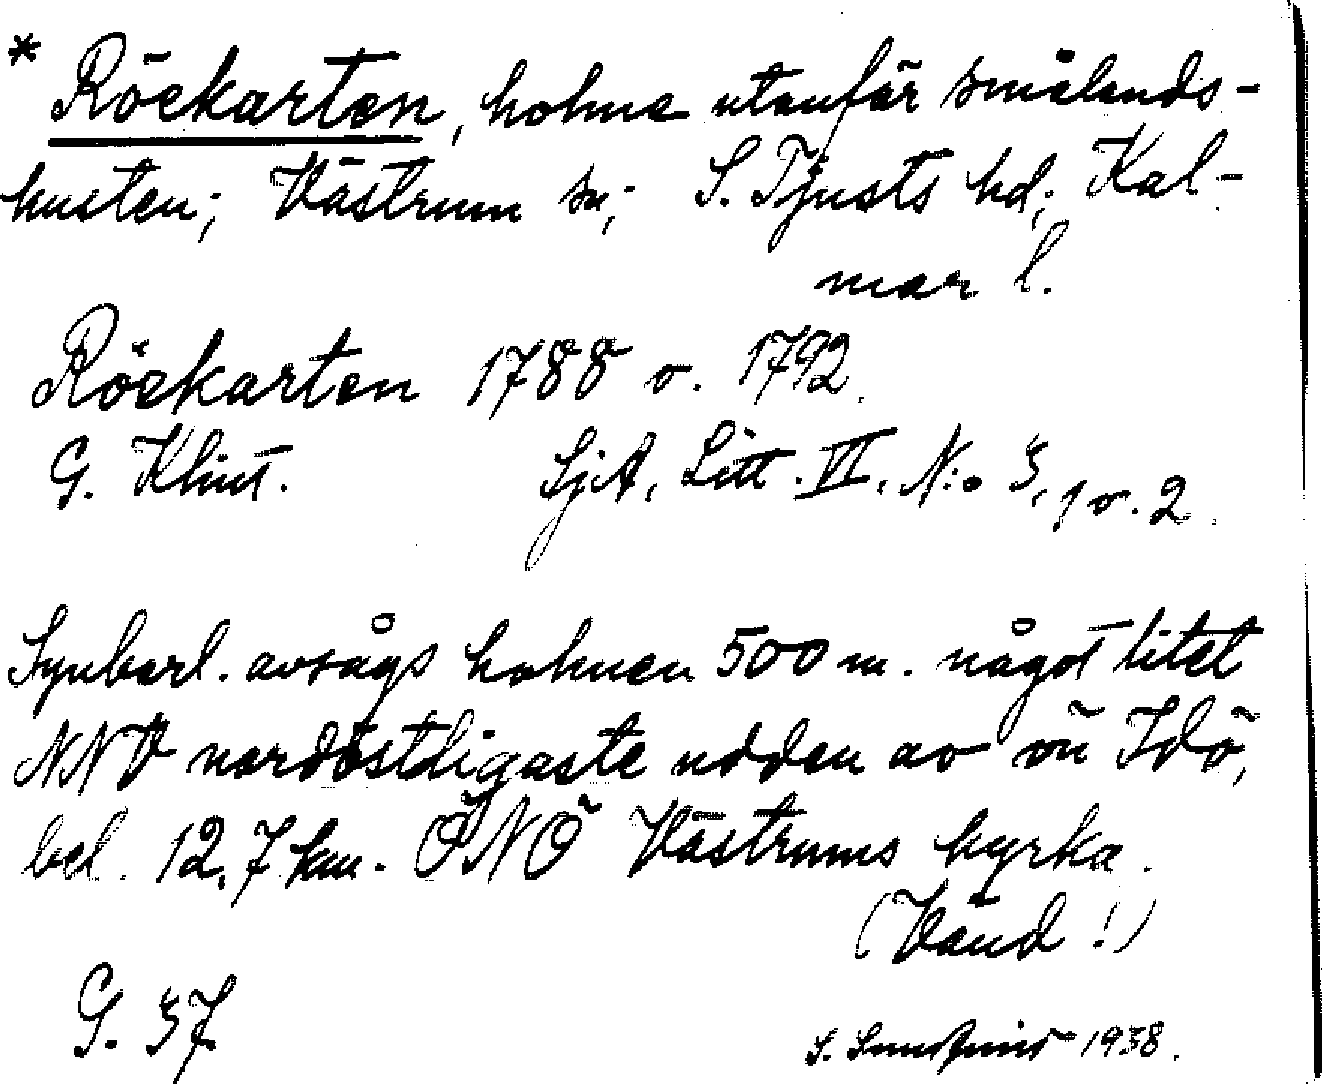 * Röckarten, holme utanför smålands-
kusten; Västrum sn; S. Tjusts hd; Kal-
mar l.
Röckarten 1788 o. 1792.
G. Klint. SjA, Litt. VI, N:o 3, 1 o. 2.
Synbarl. avsågs holmen 500 m. något litet
NNV nordöstligaste udden av ön Idö,
bel. 12,7 km. ÖNÖ Västrums kyrka.
(Vänd!)
G. 37
S. 1938.